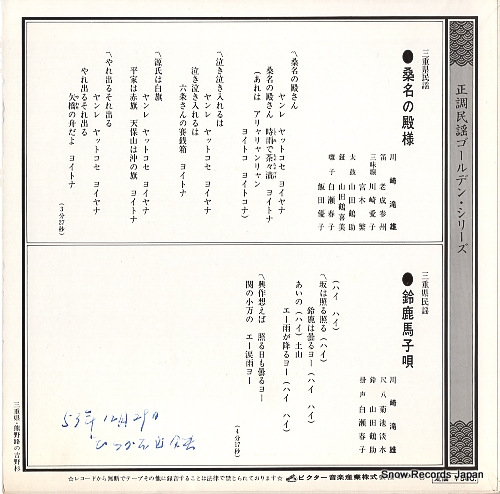 正調民謡ゴールデン・シリーズ
三重県民謡
●桑名の殿様
川崎滝雄
笛 老成参州
三味線 川崎愛子
宮木繁
太鼓 山田鶴助
鉦 山田鶴喜美
囃子 白瀬春子
飯田優子
〽桑名の殿さん
ヤンレ ヤットコセ ヨイヤナ
桑名の殿さん 時雨で茶々漬 ヨイトナ
(あれは アリャリャンリャン
ヨイトコ ヨイトコナ)
〽泣き泣き入れるは
ヤンレ ヤットコセ ヨイヤナ
泣き泣き入れるは
六条さんの賽銭箱 ヨイトナ
〽源氏は白旗
ヤンレ ヤットコセ ヨイヤナ
平家は赤旗 天保山は沖の旗 ヨイトナ
〽やれ出るそれ出る
ヤンレ ヤットコセ ヨイヤナ
やれ出るそれ出る
矢橋の舟だよ ヨイトナ
(3分27秒)
三重県民謡
●鈴鹿馬子唄
川崎滝雄
尺八 菊池淡水
鈴 山田鶴助
掛声 白瀬春子
(ハイ ハイ)
〽坂は照る照る(ハイ)
鈴鹿は曇るヨー(ハイ ハイ)
あいの(ハイ)土山
エー雨が降るヨー(ハイ ハイ)
〽與作想えば 照る日も曇るヨー
関の小万の エー涙雨ヨー
(4分17秒)
53年12月29日
三重県・熊野路の吉野杉
☆レコードから無断でテープその他に録音することは法律で禁じられております☆
ビクター音楽産業株式会社
Snow Records Japan